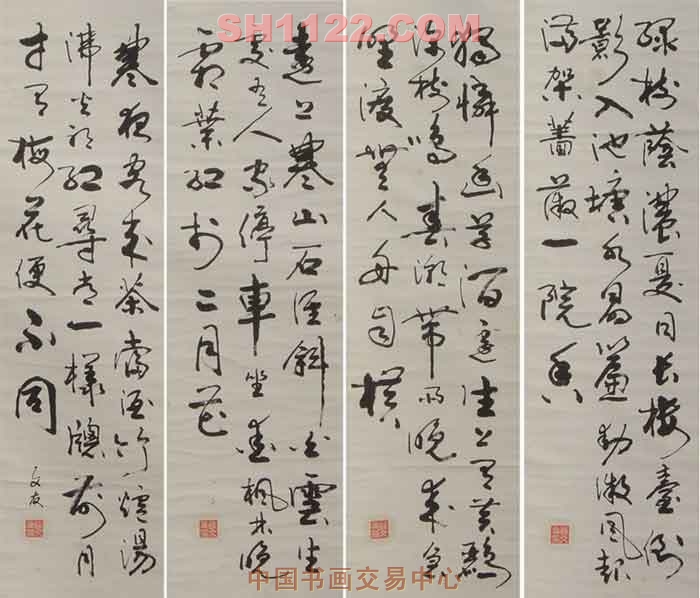 SH1122.COM
綠樹蔭濃夏日長樓臺倒
影入池塘水晶簾動微風起
滿架薔薇一院香
獨憐幽草澗邊生上有黃鸝
深樹鳴春潮帶雨晚來急
野渡無人舟自橫
遠上寒山石徑斜白雲生
處有人家停車坐愛楓林晚
霜葉紅於二月花
寒夜客來茶當酒竹爐湯
沸火初紅尋常一樣牕前月
才有梅花便不同
文友
中国书画交易中心